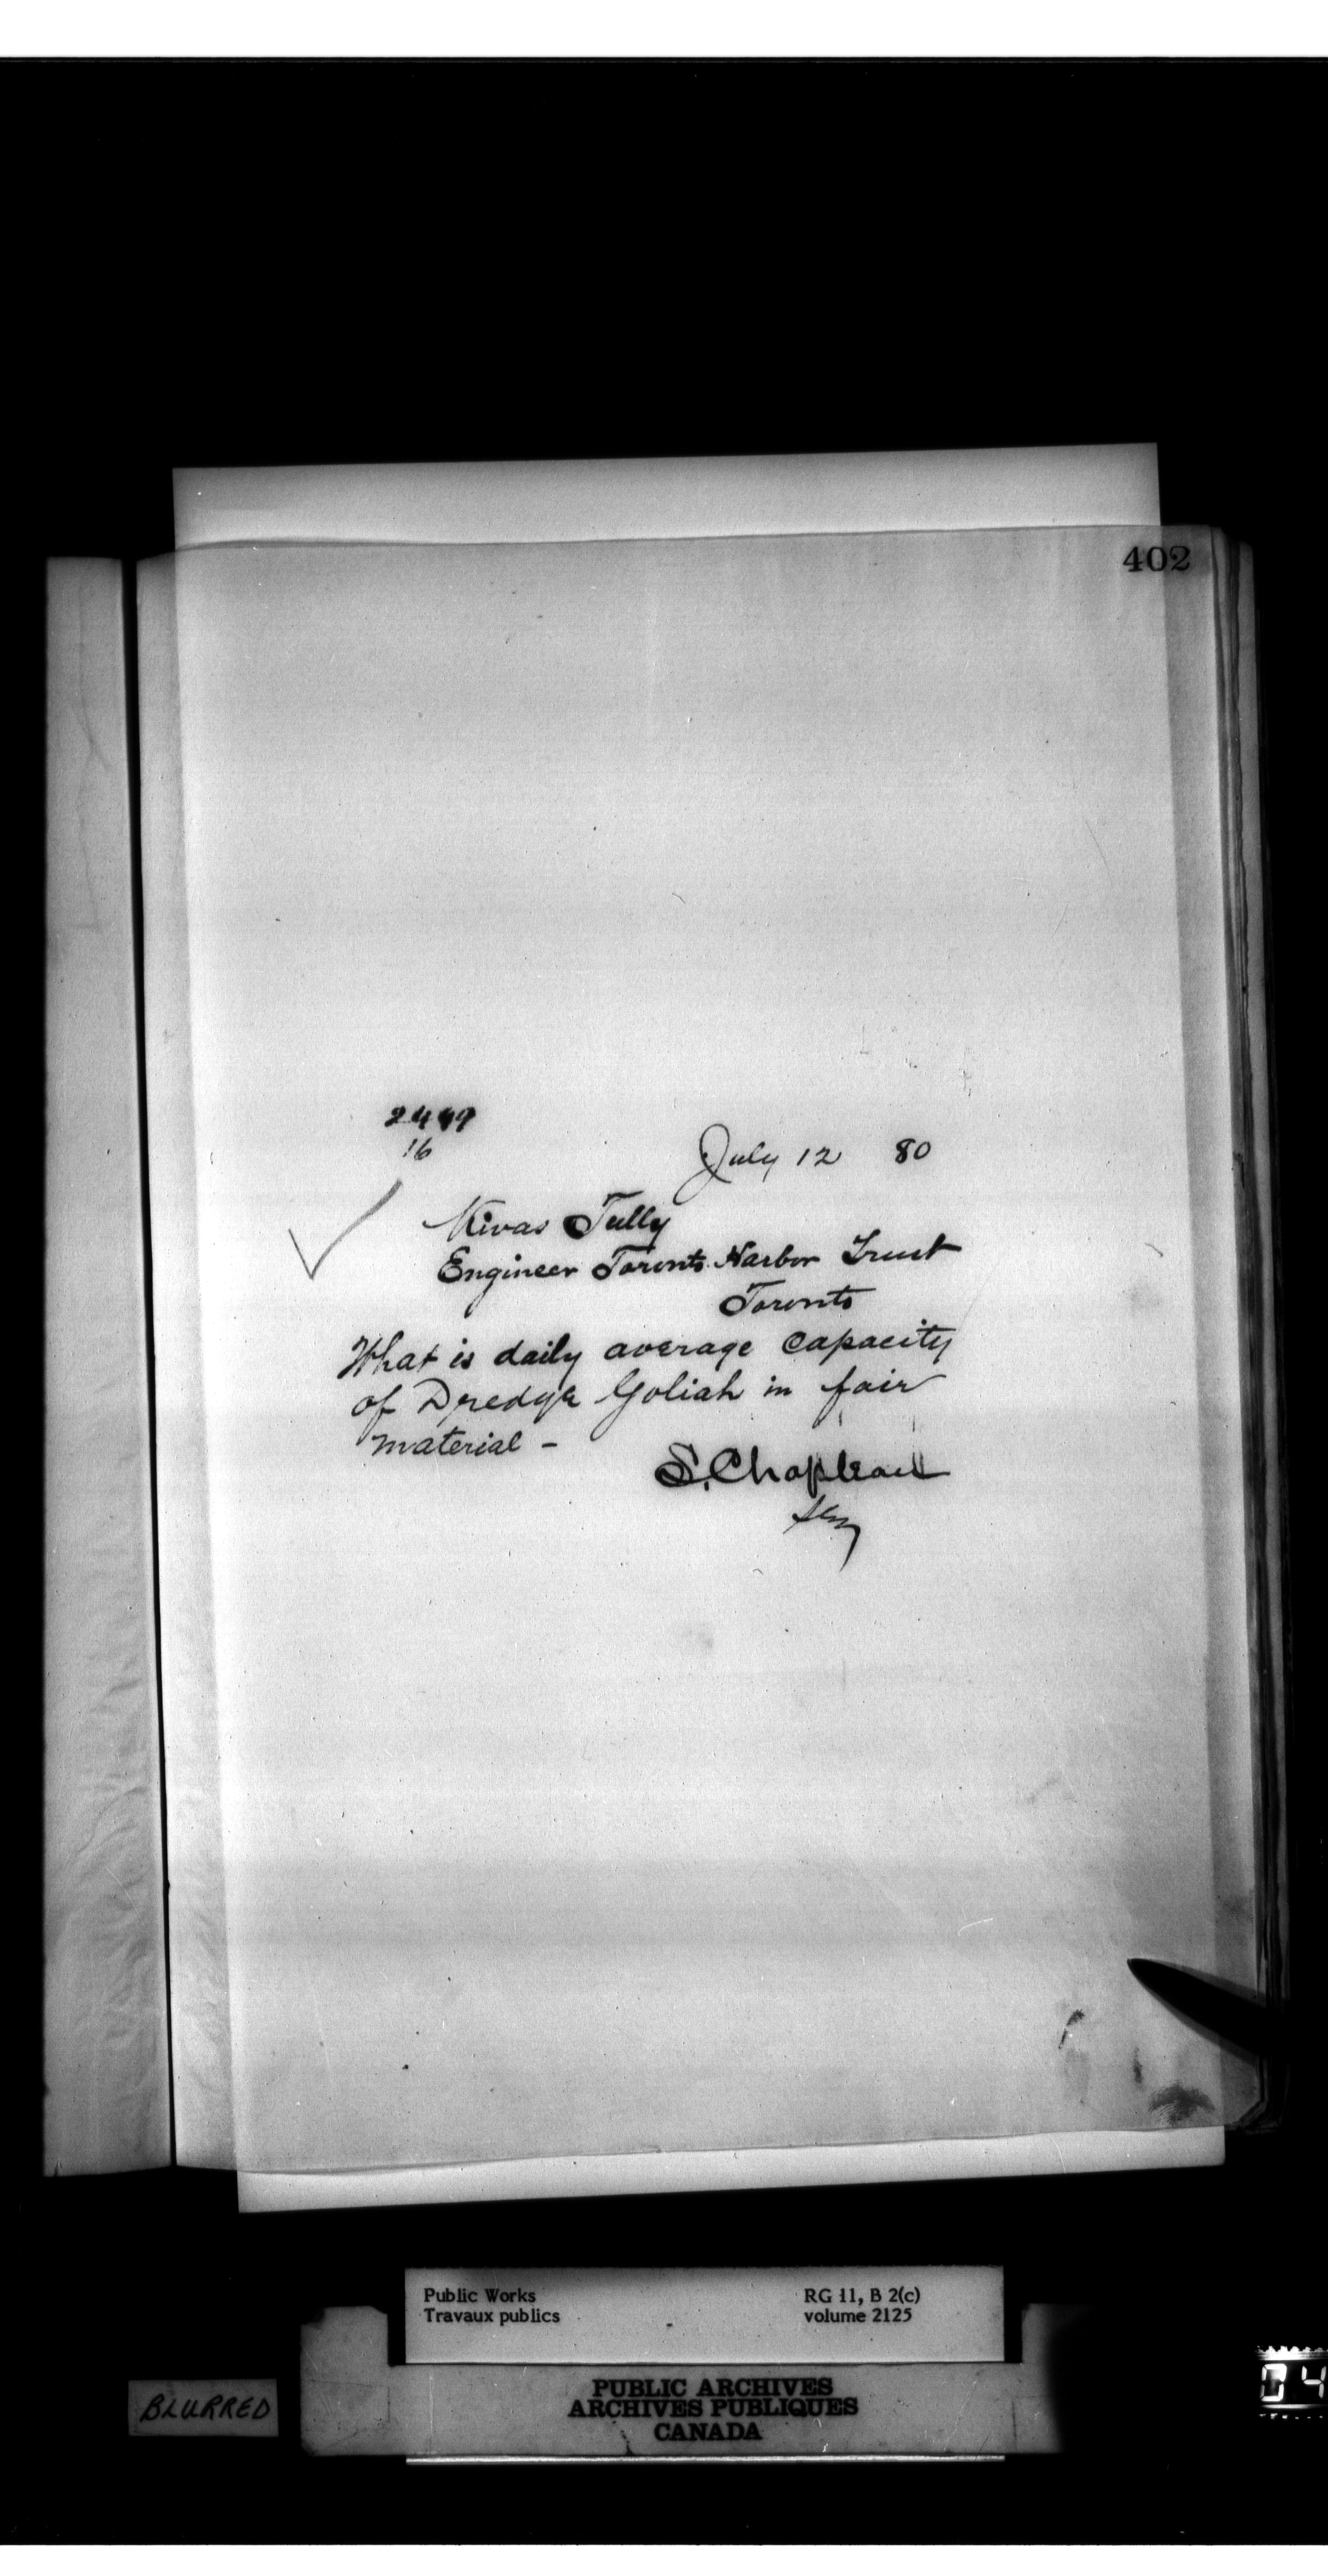 402
16
July 12 80
Kivas Tully
Engineer Toronto Harbor Trust
Toronto
What is daily average capacity
of Dredge Goliah in fair
material -
S. Chapleau
Secy
Public Works
Travaux publics
RG 11, B 2(c)
volume 2125
BLURRED
PUBLIC ARCHIVES
ARCHIVES PUBLIQUES
CANADA
04